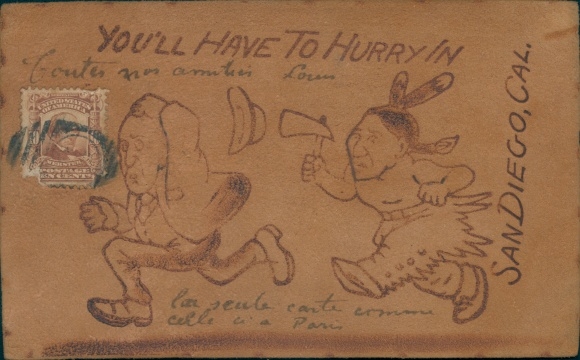 YOU'LL HAVE TO HURRY IN
SAN DIEGO, CAL.
Toutes nos amitiés Louis
UNITED STATES
OF AMERICA
WEBSTER
POSTAGE
TEN CENTS
la seule carte comme
celle ci a Paris